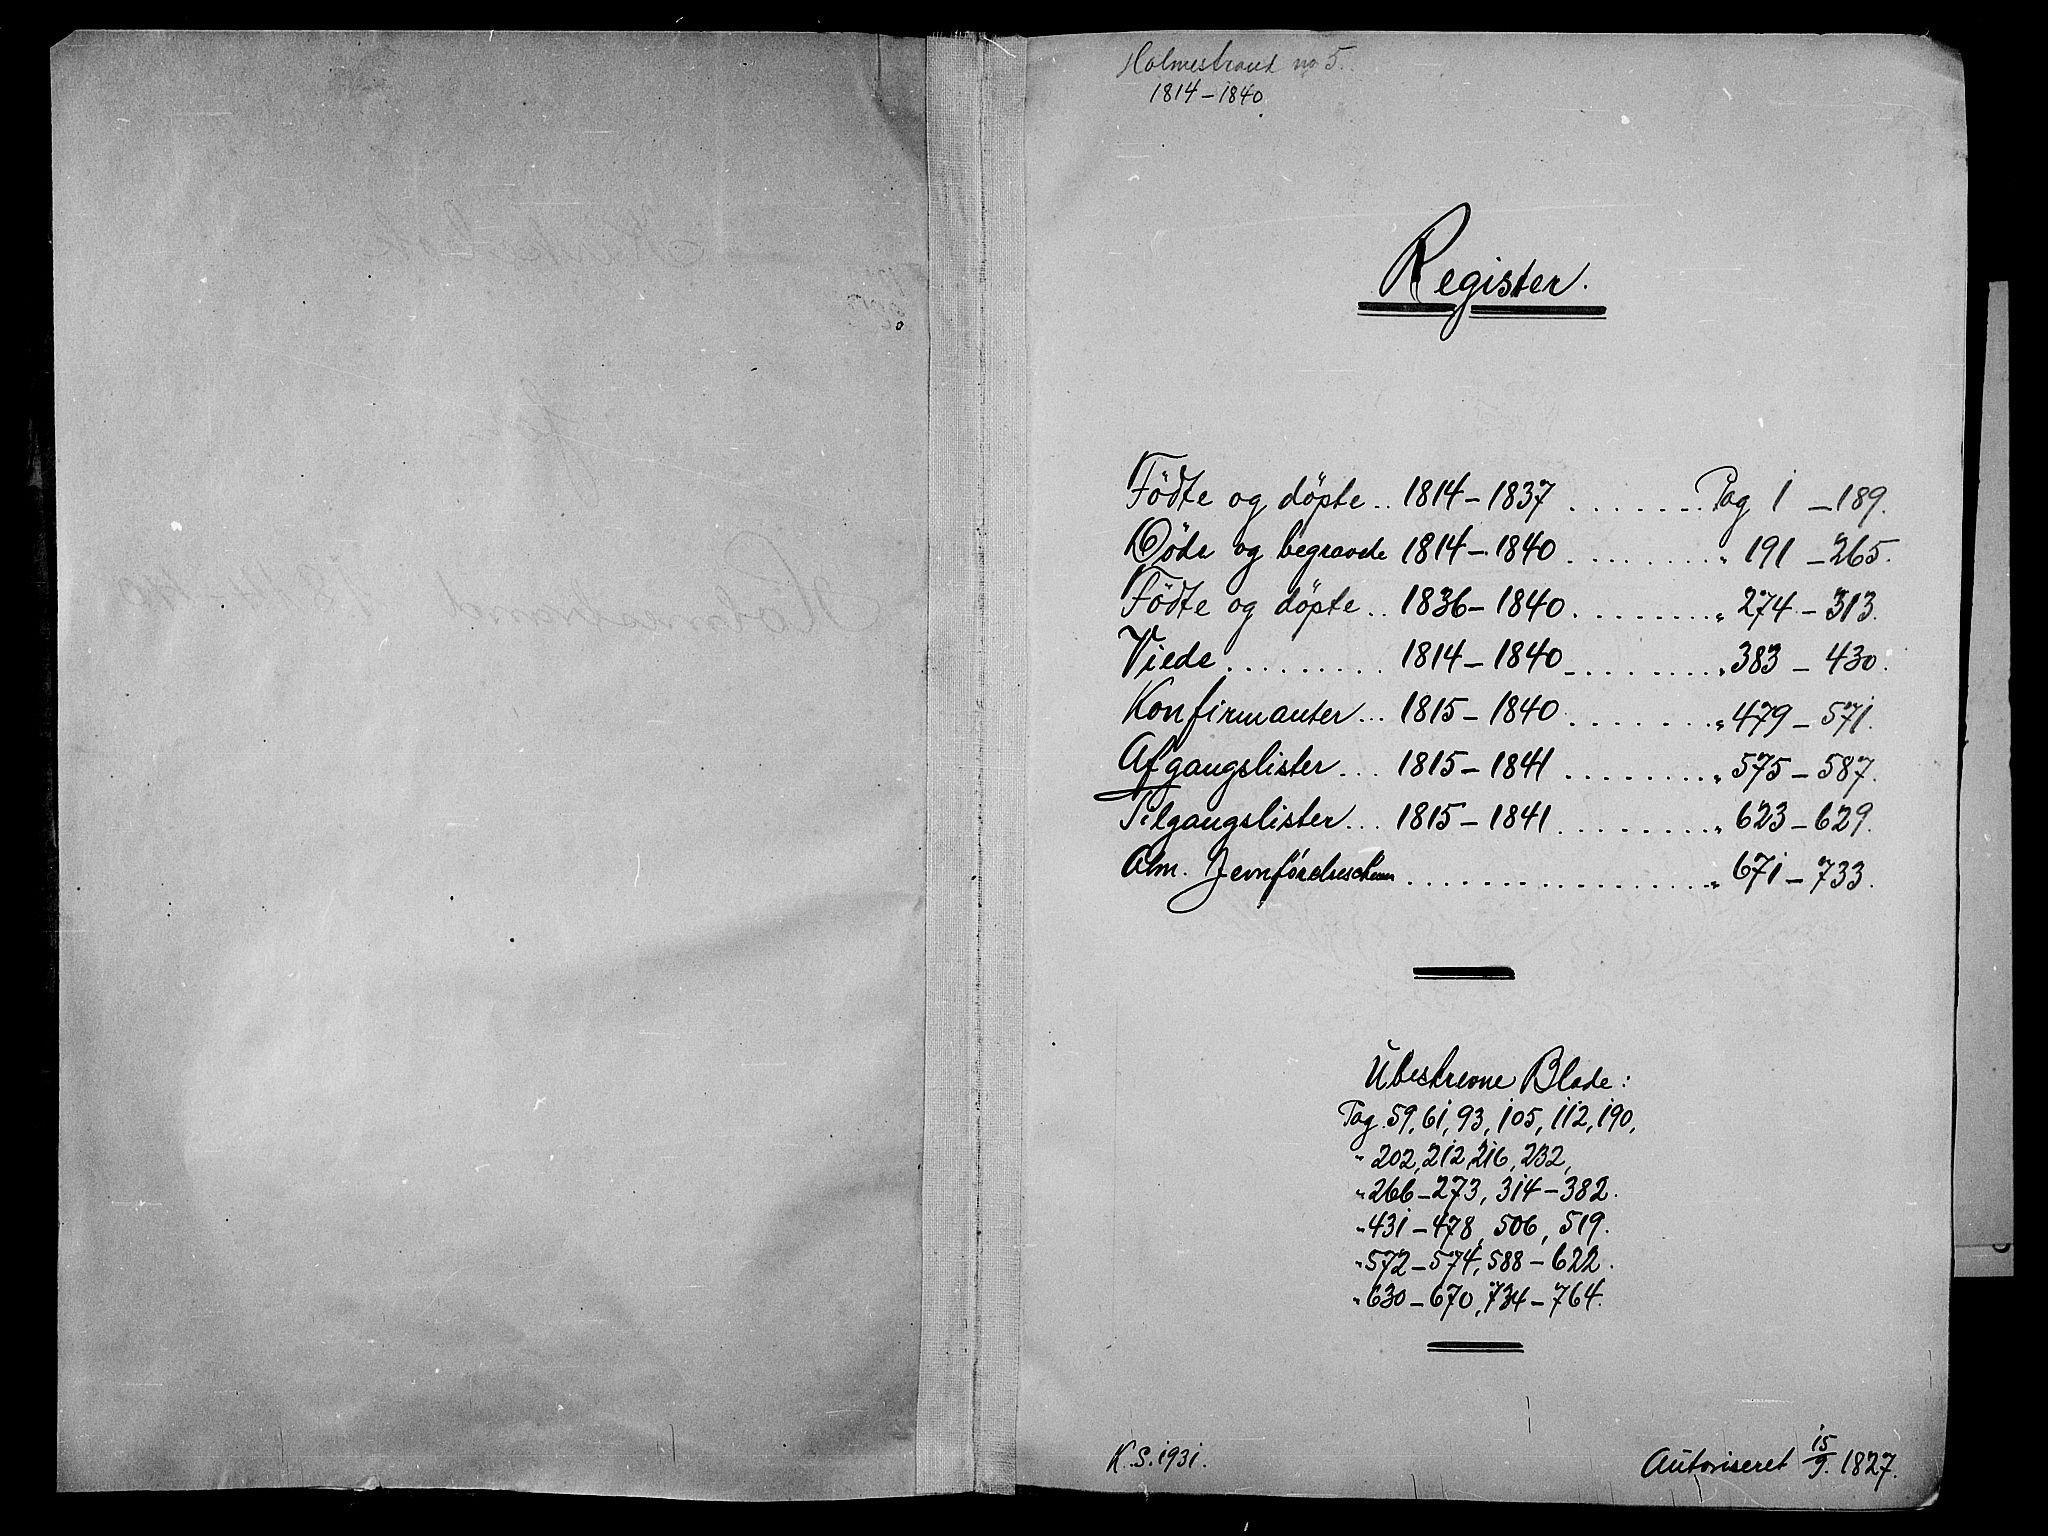 Holmestrand no 5.
1814-1840
Register.
Födte og döpte .. 1814-1837 ....... Pag 1 -189.
Döde og begravde 1814-1840 ......... " 191 -265.
Födte og döpte .. 1836-1840 ......... " 274-313.
Viede ......... 1814-1840 ......... " 383-430.
Konfirmanter... 1815-1840 ......... " 479-571.
Afgangslister... 1815-1841 ......... " 575-587.
Tilgangslister... 1815-1841 ......... " 623-629.
Alm. ................. " 671-733.
Ubeskrevne Blade:
Pag. 59, 61, 93, 105, 112, 190,
" 202, 212, 216, 232,
" 266-273, 314-382.
" 431-478, 506, 519.
" 572-574, 588-622.
" 630-670, 734-764.
K.S. 1931.
Autoriseret 15/9. 1827.